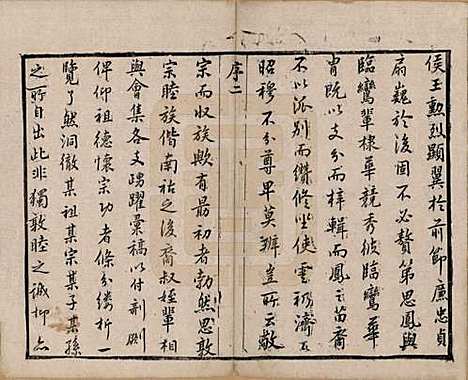 侯王勲烈顯翼於前節廉忠貞
扇巍於後固不必贅第思鳳與
臨鸞輩棣華競秀彼臨鸞華
胄既以支分而梓輯而鳳之苗裔
不以派別而僝修坐使雲礽濟
昭穆不分尊卑莫辨豈所云敬
序二
宗而收族歟有最初者勃然思敦
宗睦族偕南祜之後裔叔姪輩相
與會集各支踴躍彙稿以付剞劂
俾仰祖德懷宗功者條分縷析一
覽了然洞徹某祖某宗某子某孫
之所自出此非獨敦睦之誠抑亦